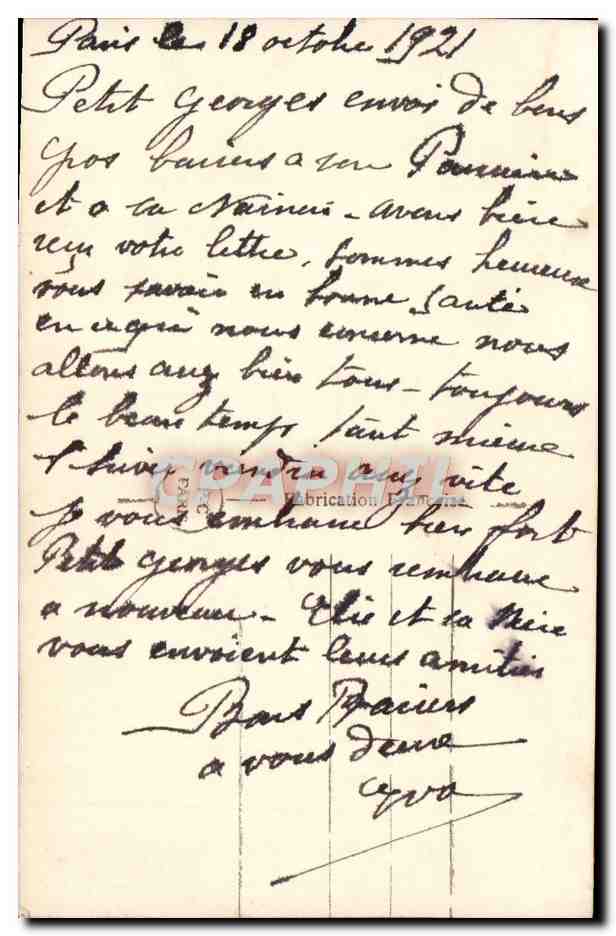 Paris le 18 octobre 1921
Petit Georges envoi de bons
gros baisers a son Parrain
et a sa Naineu - avons bien
reçu votre lettre, sommes heureux
vous savoir en bonne santé
en ce qui nous concerne nous
allons assez bien tous - toujours
le beau temps tant mieux
l'hiver viendra assez vite
CRAPHT!
Fabrication Française
PARIS
je vous embrasse bien fort
Petit Georges vous rembrasse
a nouveau - Elie et sa Mère
vous envoient leurs amitiés
Bons Baisers
a vous deux
Yvo